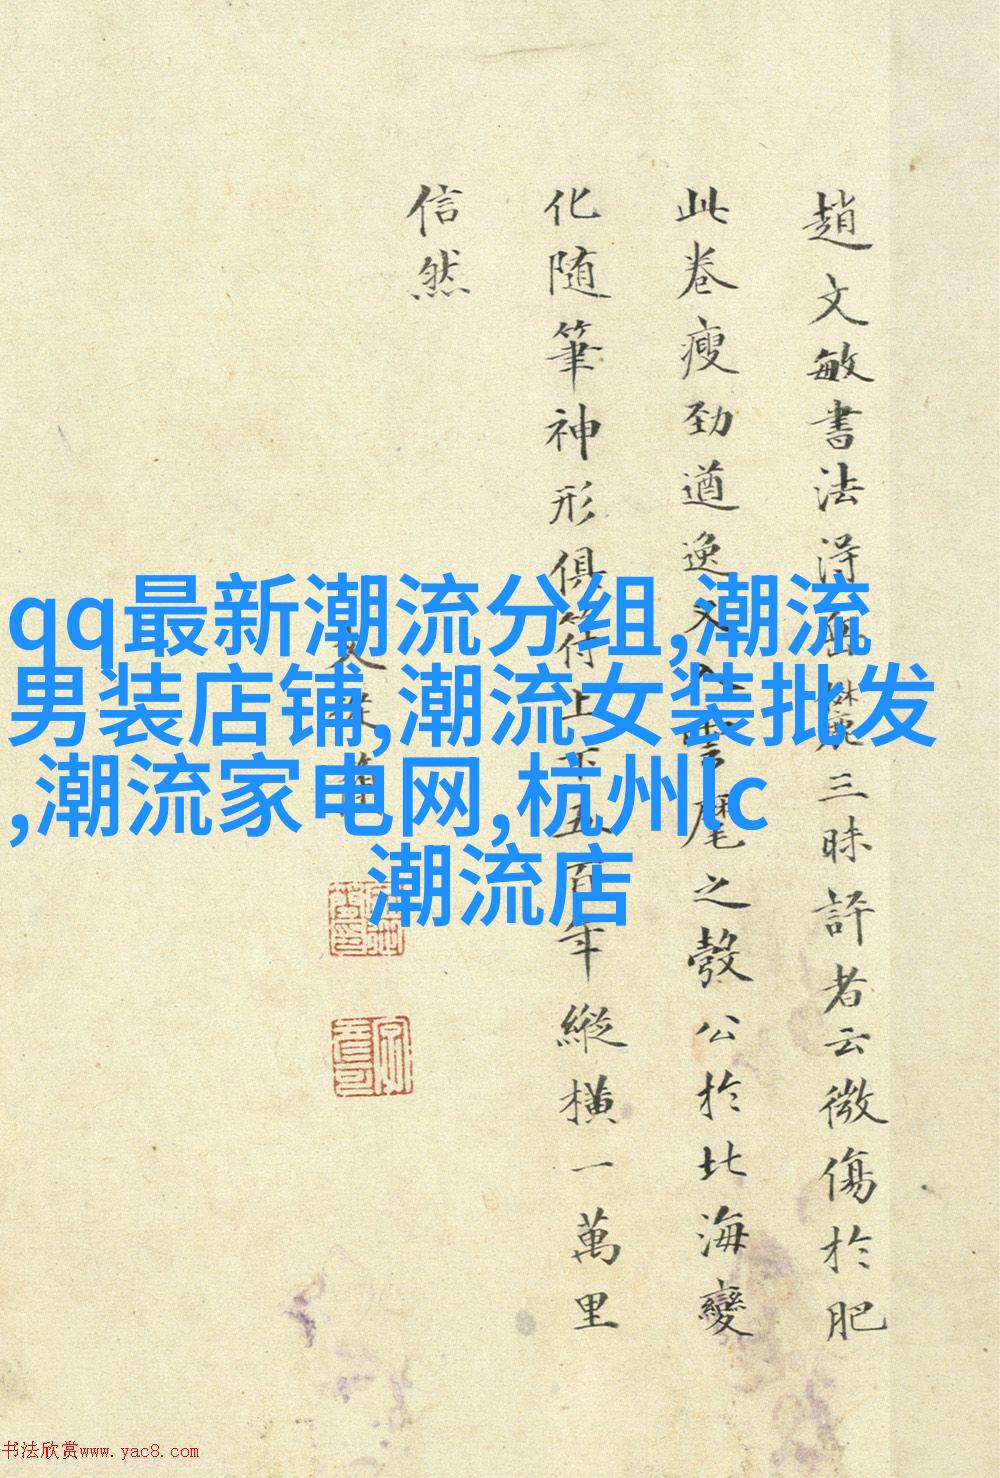 趙文敏書法淂三昧評者云微傷於肥
此卷瘦勁遒逸又入雲麾之彀公於北海變
化随筆神形俱符上下五百年縱橫一萬里
信然
qq最新潮流分组,潮流
男装店铺,潮流女装批发
,潮流家电网,杭州lc
潮流店
书法欣赏www.yac8.com